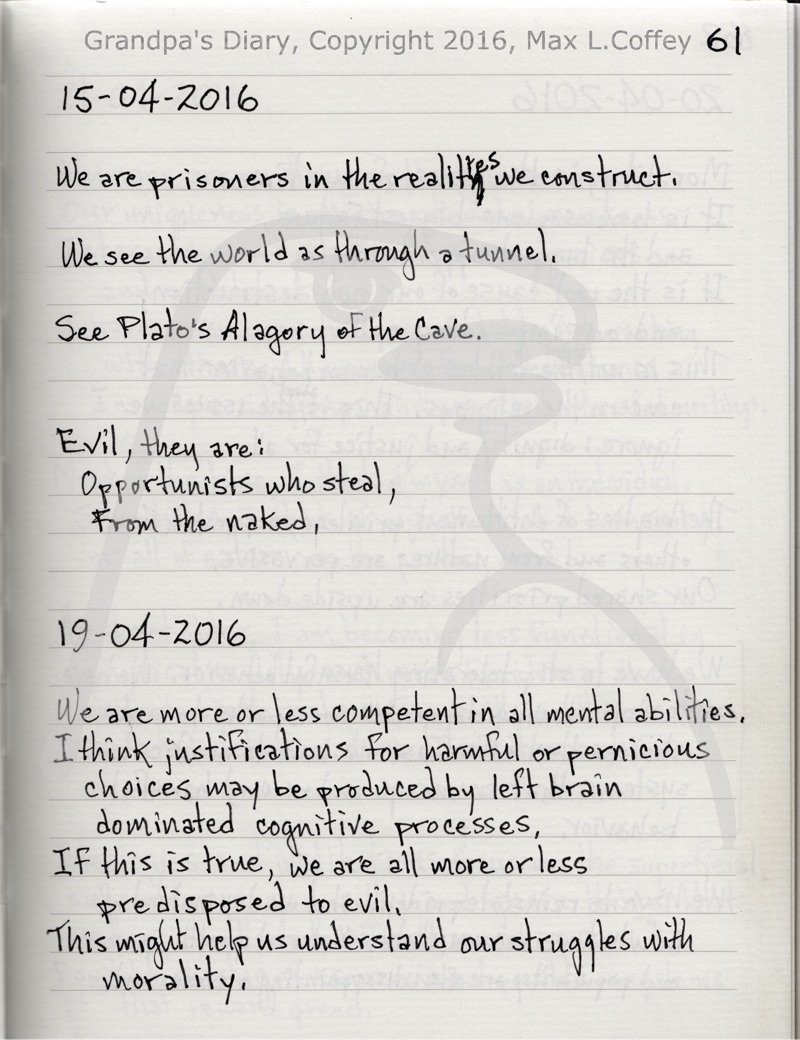 Grandpa's Diary, Copyright 2016, Max L.Coffey 61
15-04-2016
We are prisoners in the realities we construct.
We see the world as through a tunnel.
See Plato's Alagory of the Cave.
Evil, they are:
Opportunists who steal,
From the naked,
19-04-2016
We are more or less competent in all mental abilities.
I think justifications for harmful or pernicious
choices may be produced by left brain
dominated cognitive processes,
If this is true, we are all more or less
predisposed to evil.
This might help us understand our struggles with
morality.